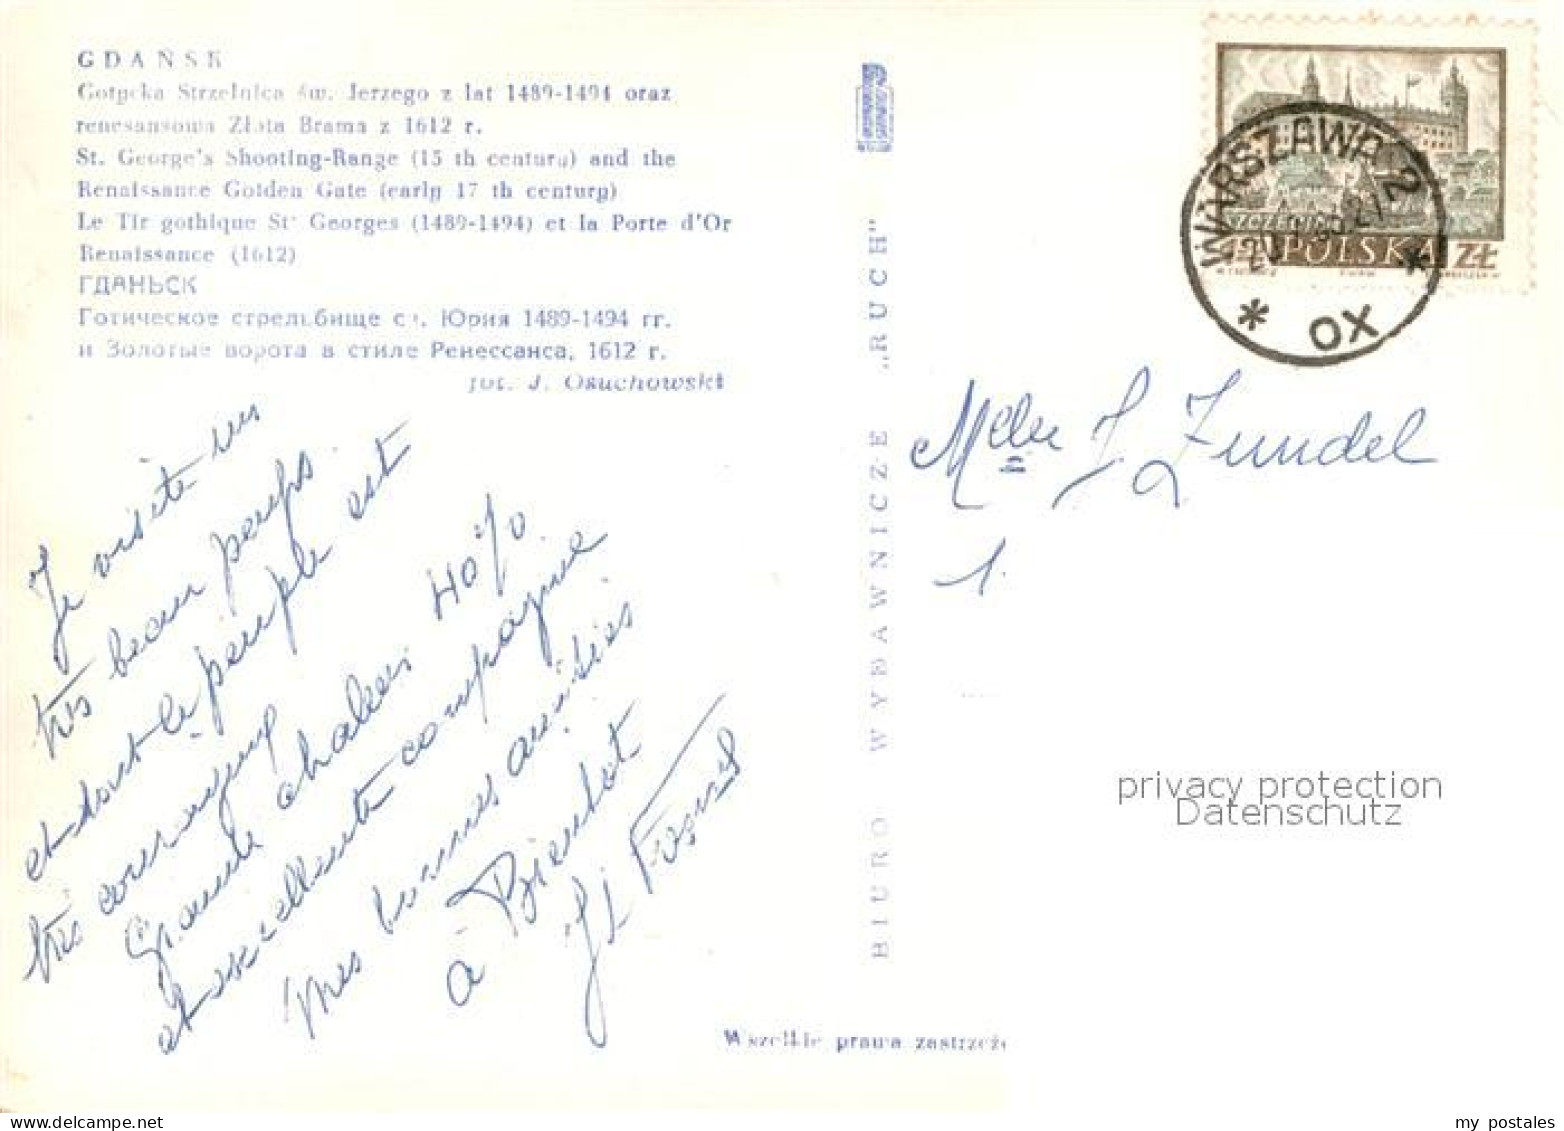 GDAŃSK
Gotycka Strzelnica św. Jerzego z lat 1489-1494 oraz
renesansowa Złota Brama z 1612 r.
St. George's Shooting-Range (15 th century) and the
Renaissance Golden Gate (early 17 th century)
Le Tir gothique St Georges (1489-1494) et la Porte d'Or
Renaissance (1612)
ГДАНЬСК
Готическое стрельбище св. Юрия 1489-1494 гг.
и Золотые ворота в стиле Ренессанса, 1612 г.
fot. J. Osuchowski
Je visite un
très beau pays
et dont le peuple est
très courageux
Grande chaleur 40%
et excellente compagnie
Mes bonnes amitiés
à Bientôt
BIURO WYDAWNICZE „RUCH"
Wszelkie prawa zastrzeże
WARSZAWA 2
* OX *
POLSKA ZŁ
Melle J. Zundel
1.
privacy protection
Datenschutz
delcampe.net
my_postales